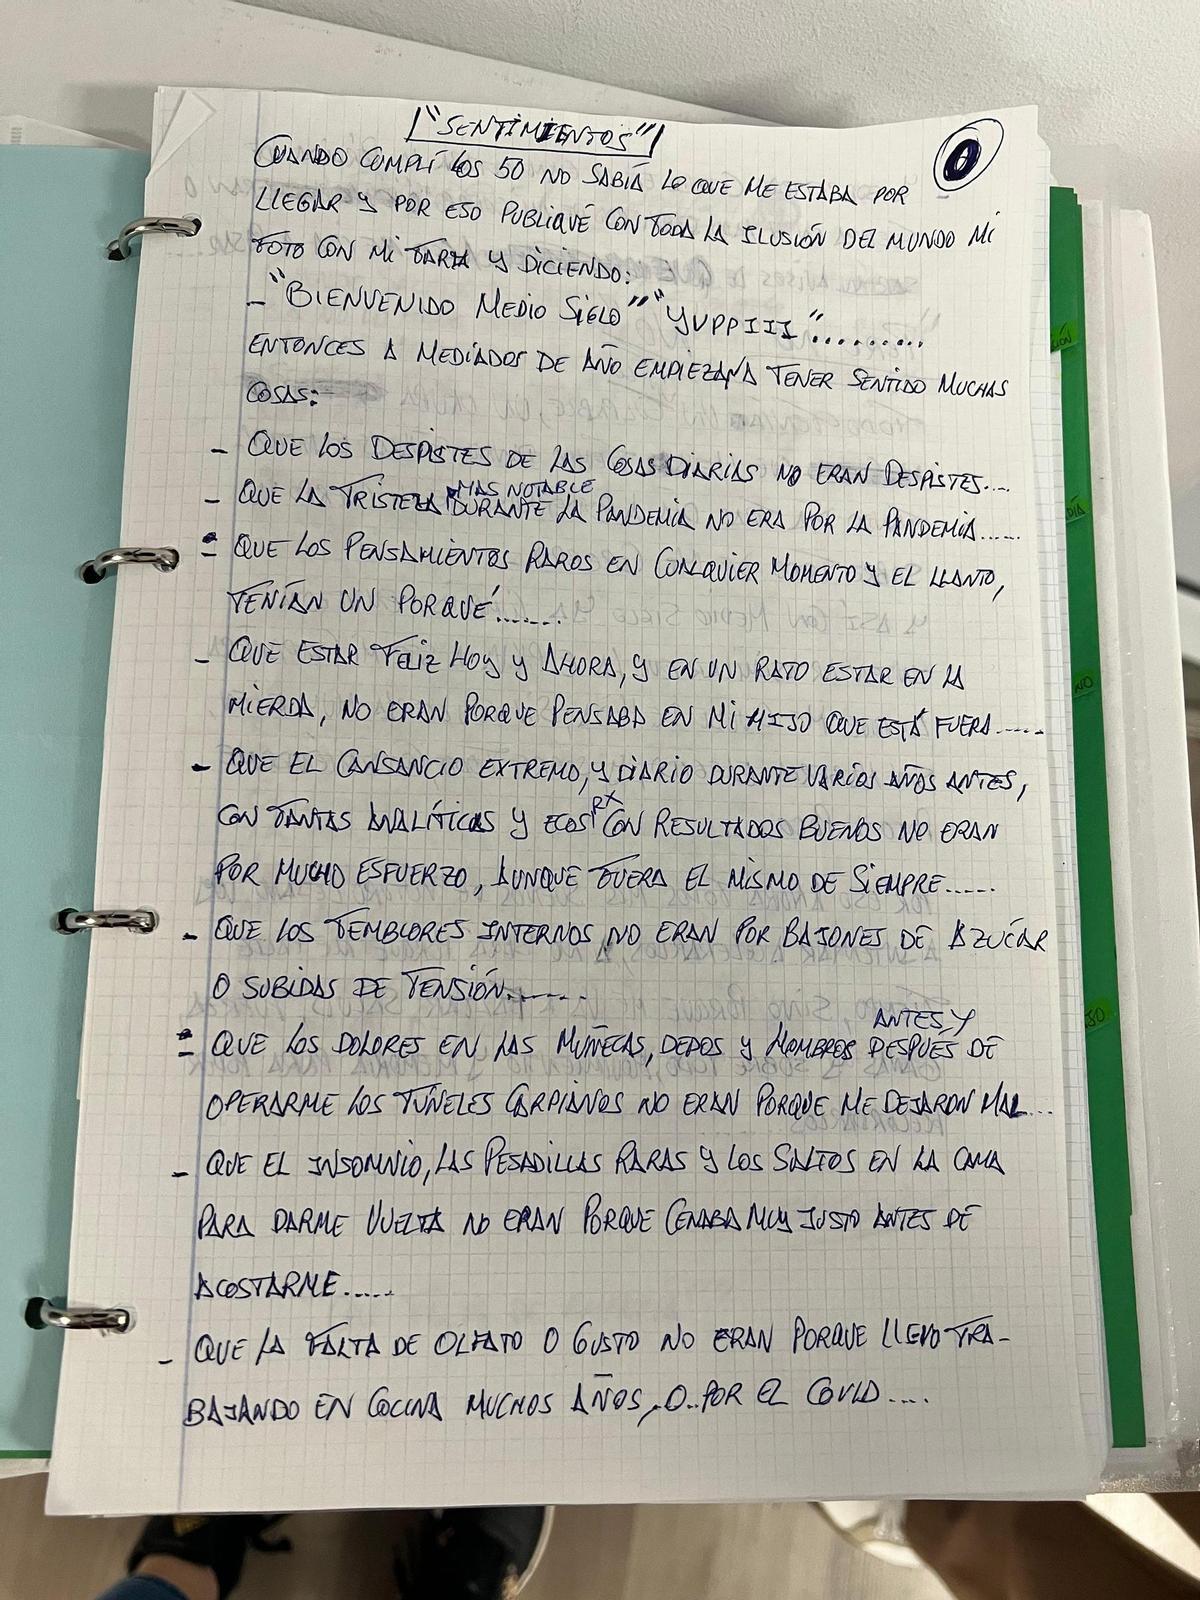 "SENTIMIENTOS"
0
CUANDO CUMPLÍ LOS 50 NO SABÍA LO QUE ME ESTABA POR
LLEGAR Y POR ESO PUBLIQUÉ CON TODA LA ILUSIÓN DEL MUNDO MI
FOTO CON MI TARTA Y DICIENDO:
- "BIENVENIDO MEDIO SIGLO" "YUPPIII".........
ENTONCES A MEDIADOS DE AÑO EMPIEZAN A TENER SENTIDO MUCHAS
COSAS:
- QUE LOS DESPISTES DE LAS COSAS DIARIAS NO ERAN DESPISTES....
- QUE LA TRISTEZA MAS NOTABLE DURANTE LA PANDEMIA NO ERA POR LA PANDEMIA......
- QUE LOS PENSAMIENTOS RAROS EN CUALQUIER MOMENTO Y EL LLANTO,
TENÍAN UN PORQUÉ.......
- QUE ESTAR FELIZ HOY Y AHORA, Y EN UN RATO ESTAR EN LA
MIERDA, NO ERAN PORQUE PENSABA EN MI HIJO QUE ESTÁ FUERA.....
- QUE EL CANSANCIO EXTREMO, Y DIARIO DURANTE VARIOS AÑOS ANTES,
CON TANTAS ANALÍTICAS Y ECOS RX CON RESULTADOS BUENOS NO ERAN
POR MUCHO ESFUERZO, AUNQUE FUERA EL MISMO DE SIEMPRE.....
- QUE LOS TEMBLORES INTERNOS, NO ERAN POR BAJONES DE AZÚCAR
O SUBIDAS DE TENSIÓN.......
- QUE LOS DOLORES EN LAS MUÑECAS, DEDOS Y HOMBROS ANTES Y DESPUES DE
OPERARME LOS TÚNELES CARPIANOS NO ERAN PORQUE ME DEJARON MAL...
- QUE EL INSOMNIO, LAS PESADILLAS RARAS Y LOS SALTOS EN LA CAMA
PARA DARME VUELTA NO ERAN PORQUE CENABA MUY JUSTO ANTES DE
ACOSTARME.....
- QUE LA FALTA DE OLFATO O GUSTO NO ERAN PORQUE LLEVO TRA-
BAJANDO EN COCINA MUCHOS AÑOS, O.. POR EL COVID....